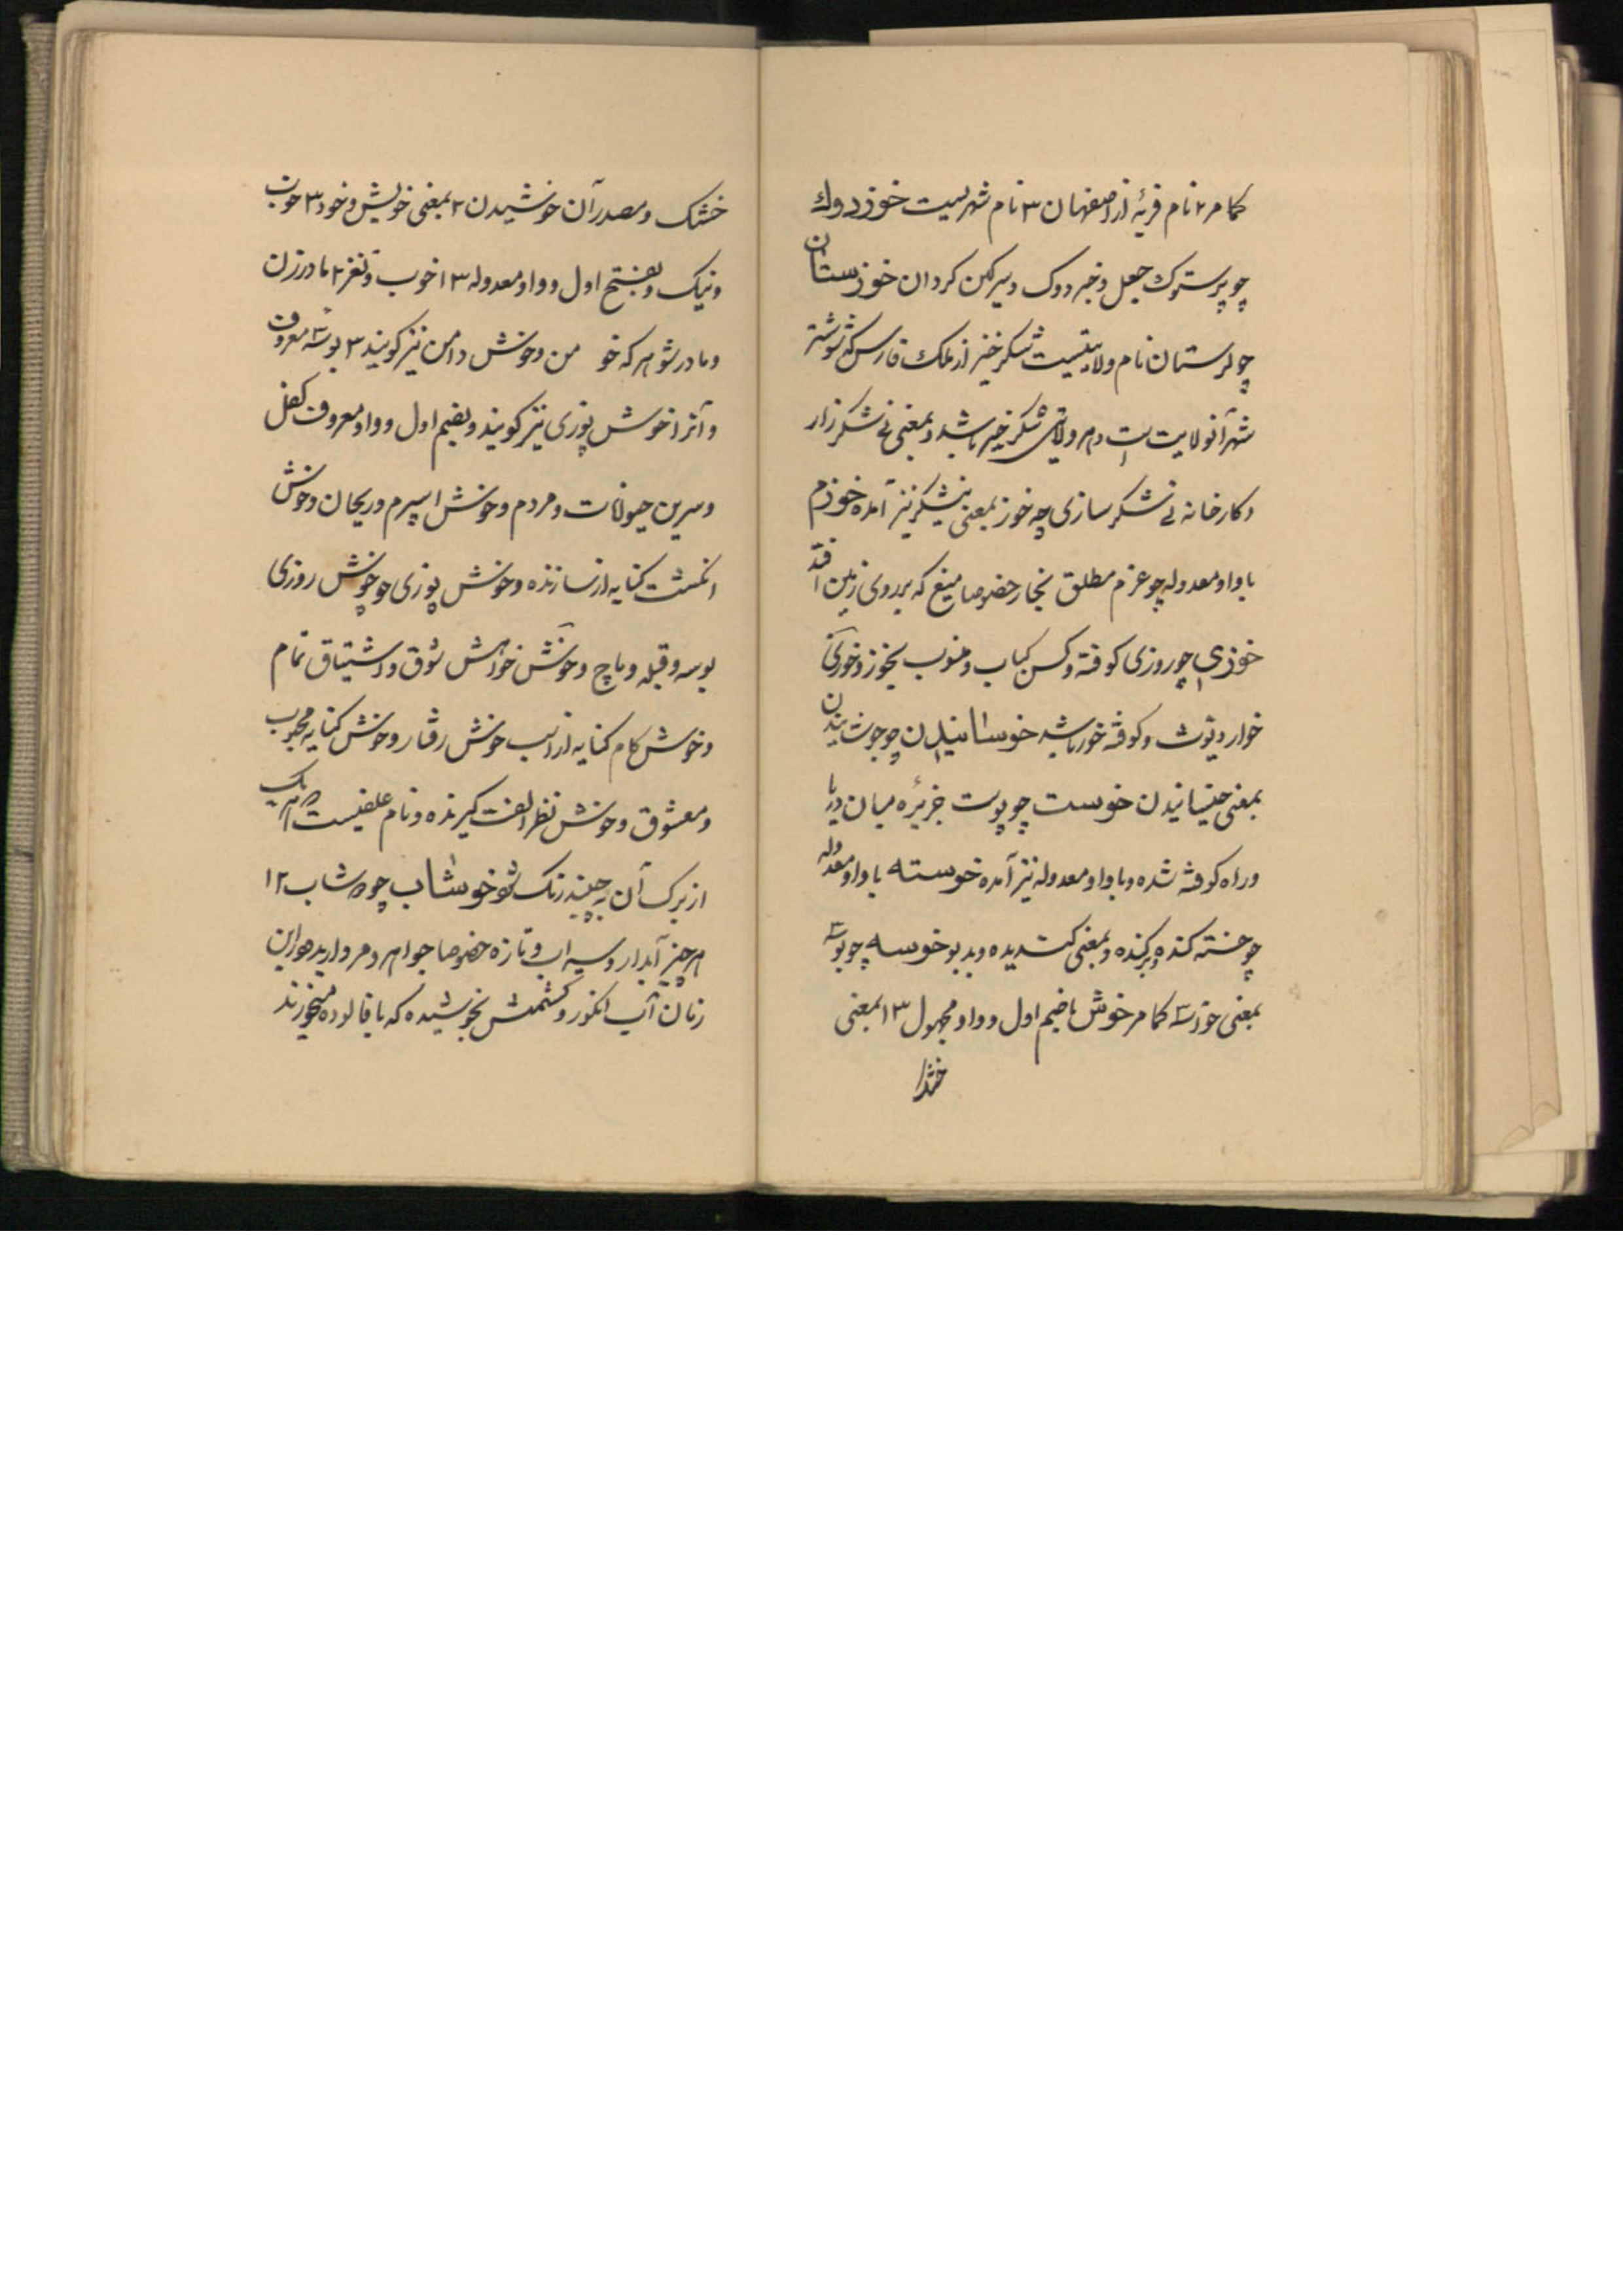 کما مر ۲ نام قریهٔ از اصفهان ۳ نام شهریست خوزدوک
چو پرستوک جعل و خبزدوک و سرکین کردان خوزستان
چو لرستان نام ولایتیست شکرخیز از ملک فارس که شوشتر
شهر آنولایت است و هر ولایتی شکر خیز باشد و بمعنی نی شکر زار
و کارخانه نی شکر سازی چه خوز بمعنی نیشکر نیز آمده خوزم
با واو معدوله چو عزم مطلق بخار خصوصا میغ که بر روی زمین افتد
خوزی چو روزی کوفته و کسن کباب و منسوب بخوز و خوزی
خوار و توت و کوفته خور باشد خوسانیدن چو جوشانیدن
بمعنی خیسانیدن خوست چو پوست جزیره میان دریا
و راه کوفته شده و با واو معدوله نیز آمده خوسته با واو معدوله
چو خسته کنده و برکنده و بمعنی کندیده و بدبو خوسه چو بوسه
بمعنی خوزسه کما مر خوش باضم اول و واو مجهول ۱۳ بمعنی
خشک
خشک و مصدر آن خوشیدن ۲ بمعنی خویش و خود ۳ خوب
و نیک و بفتح اول و واو معدوله ۱۳ خوب و نغز ۲ مادر زن
و مادر شوهر که خو من و خوش دامن نیز کویند ۳ بوسه معروف
و آنرا خوش پوزی نیز کویند و بضم اول و واو معروف کفل
و سرین حیوانات و مردم و خوش اسپرم و ریحان و خوش
انکشت کنایه از سازنده و خوش پوزی چو خوش روزی
بوسه و قبله و ماچ و خوش خواهش شوق و اشتیاق تمام
و خوش کام کنایه از اسب خوش رفتار و خوش کنایه محبوب
و معشوق و خوش نظر الفت کیرنده و نام علفیست که هر یک
از برک آن به چند رنک شود خوشاب چو دوشاب ۱۲
هر چیز آبدار و سیراب و تازه خصوصا جواهر و مروارید و در این
زمان آب انکور و کشمش بخوشیده که با فالوده میخورند